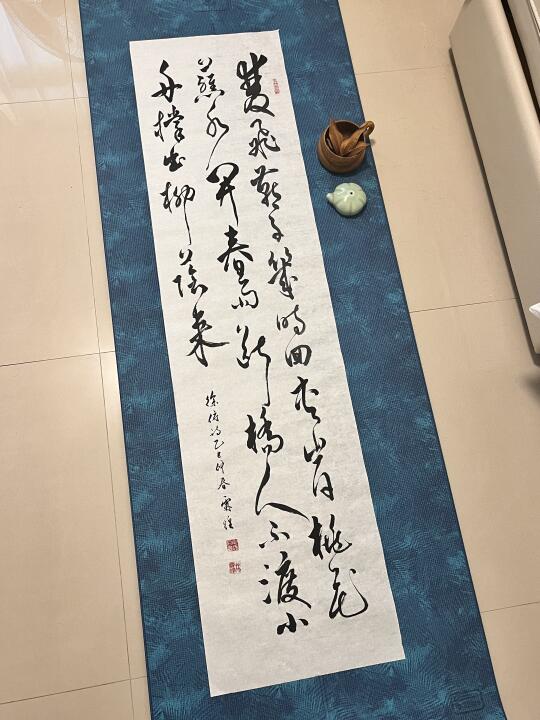 雙飛燕子幾時回夾岸桃花
蘸水開春雨斷橋人不渡小
舟撐出柳蔭來
徐俯詩乙巳年春